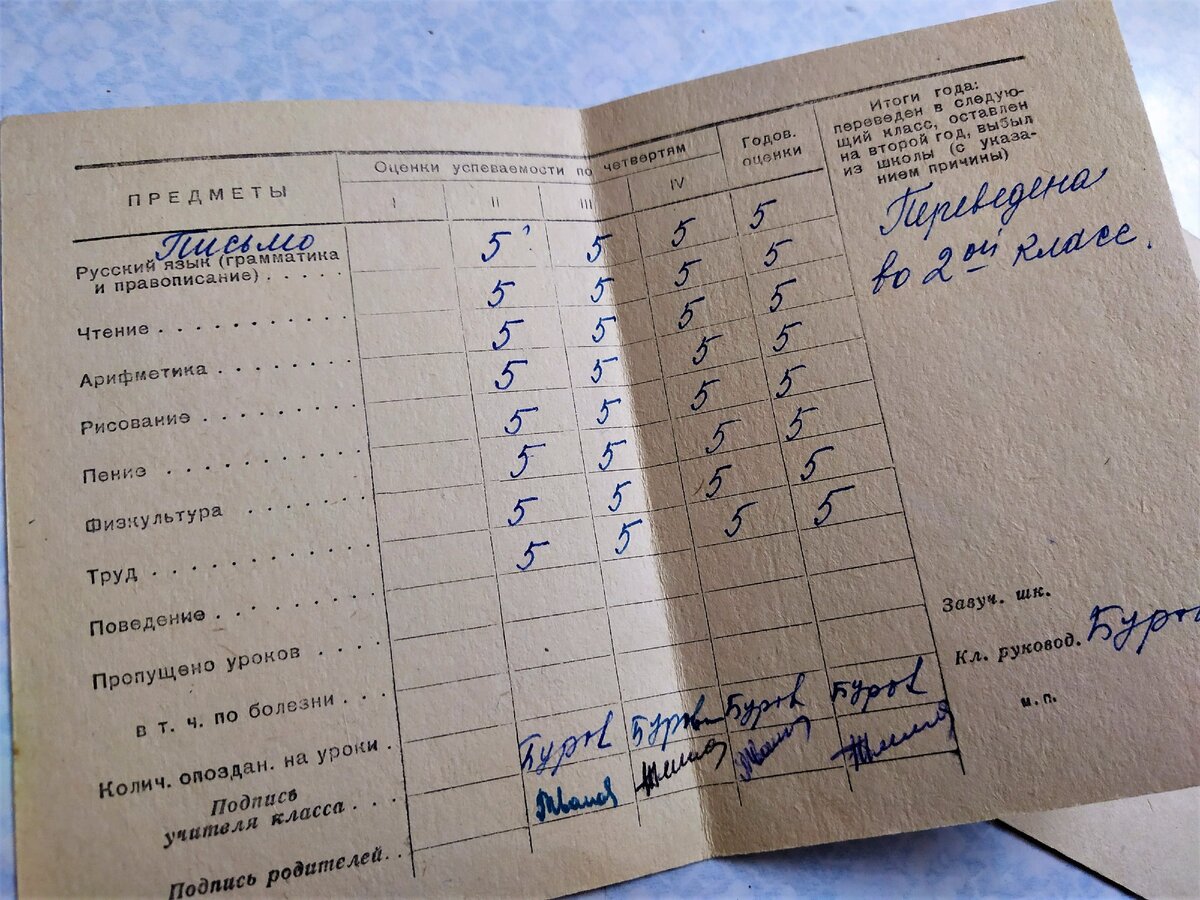 ПРЕДМЕТЫ
Оценки успеваемости по четвертям
I II III IV
Годов.
оценки
Итоги года:
переведен в следую-
щий класс, оставлен
на второй год, выбыл
из школы (с указа-
нием причины)
Письмо
Русский язык (грамматика
и правописание) . . . . . 5 5 5 5
Чтение . . . . . . . . . . . 5 5 5 5
Арифметика . . . . . . . . 5 5 5 5
Рисование . . . . . . . . . 5 5 5 5
Пение . . . . . . . . . . . 5 5 5 5
Физкультура . . . . . . . 5 5 5 5
Труд . . . . . . . . . . . . 5 5 5 5
Поведение . . . . . . . . . 5 5 5 5
Пропущено уроков . . . .
в т. ч. по болезни . . .
Колич. опоздан. на уроки .
Подпись
учителя класса . . . Буров Буров Буров Буров
Подпись родителей . .
Переведена
во 2ой класс.
Завуч. шк.
Кл. руковод. Буров
м. п.